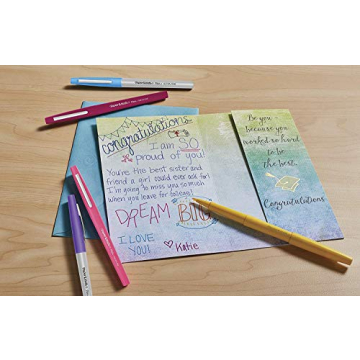 Congratulations
I am SO
proud of you!
You're the best sister and
friend a girl could ever ask for!
I'm going to miss you so much
when you leave for college!
DREAM BIG
I LOVE
YOU!
Katie
Be you
because you
worked so hard
to be
the best.
Congratulations
Paper Mate
Paper Mate